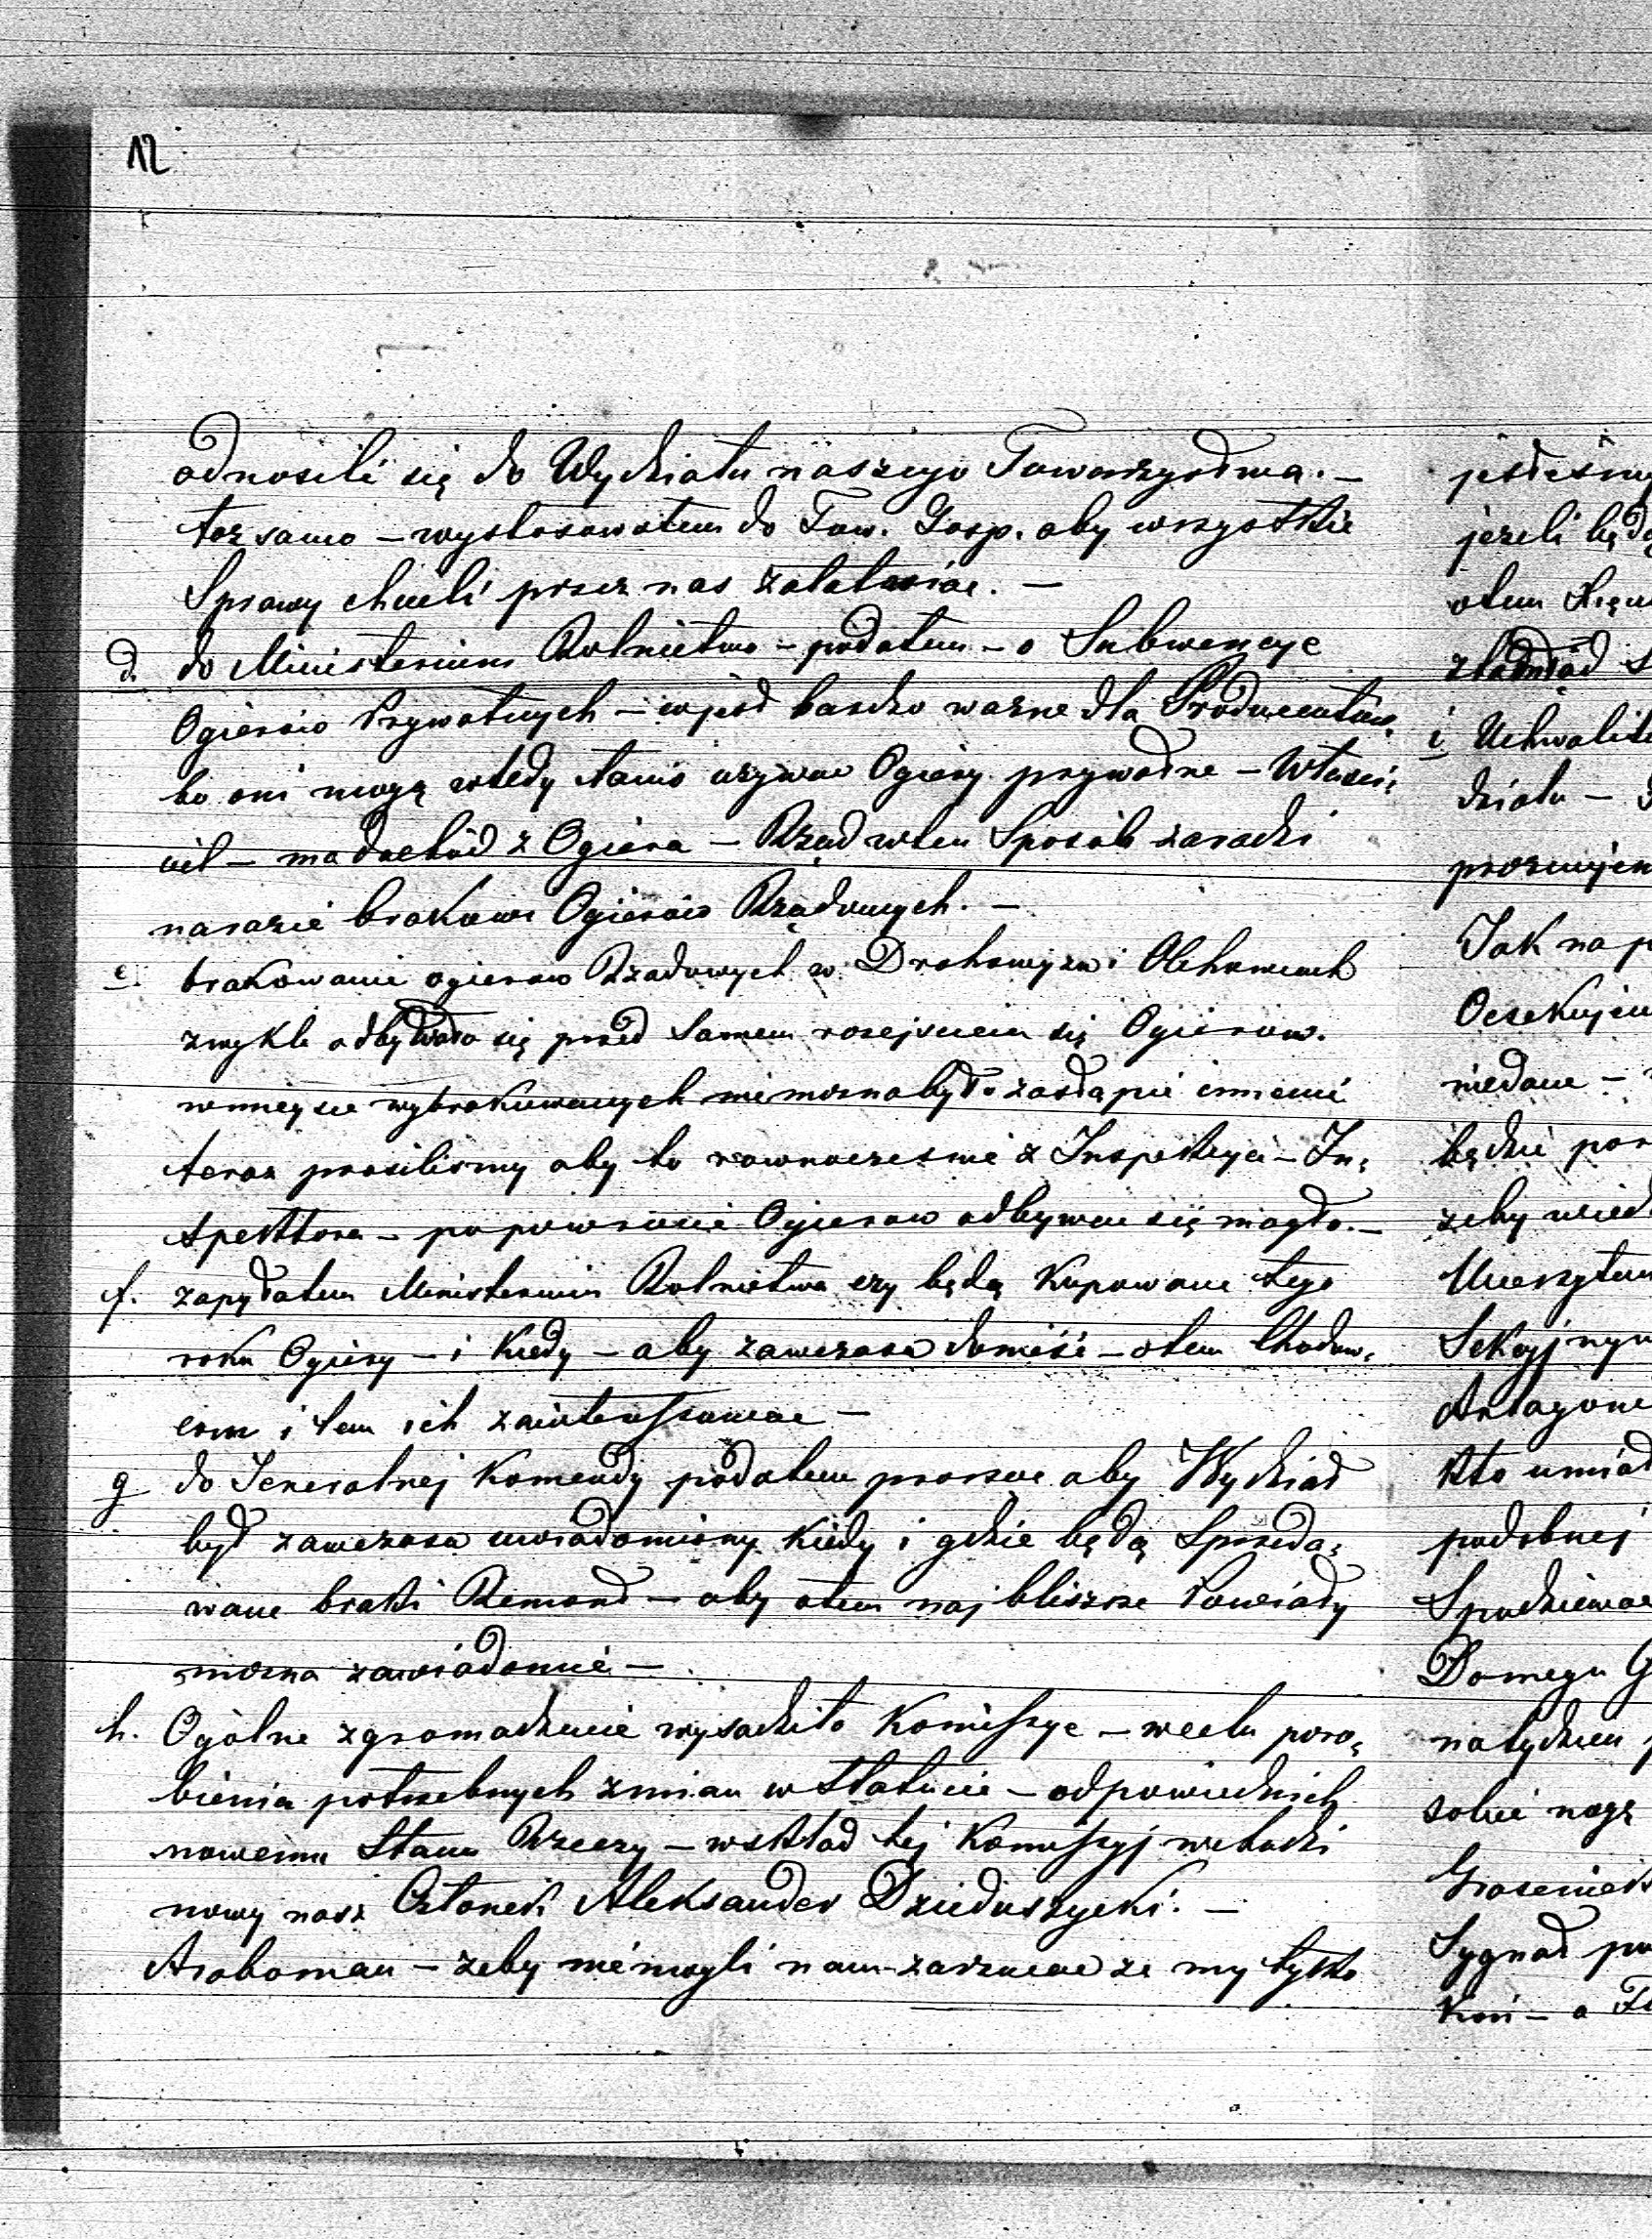 12
odnosili się do Wydziału naszego Towarzystwa. –
toż samo – wystosowałem do Tow. Gosp. aby wszystkie
Sprawy chcieli przez nas załatwiać. –
d. do Ministerium Rolnictwa – podałem – o Subwencye
Ogierów Prywatnych – co jest bardzo ważne dla Producentów
bo oni mogą wtedy tanio używać Ogiery prywatne – Właści:
ciel – ma dochód z Ogiera – Rząd w ten Sposób zaradzi
narazie brakowi Ogierów Rządowych. –
e. brakowanie ogierów Rządowych w Drohowyżu i Olchowcach
zwykle odbywało się przed samem rozejściem się Ogierów.
w miejsce wybrakowanych nie można było zastąpić innemi
teraz prosiliśmy aby to równocześnie z Inspekcyi – In:
spektora – po powrocie Ogierów odbywać się mogło. –
f. zapytałem Ministerium Rolnictwa czy będą Kupowane tego
roku Ogiery – i Kiedy – aby zawczasu donieść – o tem hodow:
com i tem ich zainteressować –
g do Jeneralnej Komendy podałem prozbę aby Wydział
był zawczasu uwiadomiony Kiedy i gdzie będą Sprzeda:
wane braki Remont – aby o tem najbliższe Powiaty
można zawiadomić –
h. Ogólne zgromadzenie wysadziło Komissye – w celu poro:
bienia potrzebnych zmian w Statucie – odpowiednich
nowemu Stanu Rzeczy – w skład tej Komissyj wchodzi
nowy nasz Członek Aleksander Dzieduszycki. –
Araboman – żeby nie mogli nam zarzucać że my tylko
jesteśmy
jeżeli
o tem
i Uchwali
działu –
Jak na
niedane –
będzie
żeby
Kto umiał
podobnej
Spodziewać
sobie
Sygnał
Koń – a